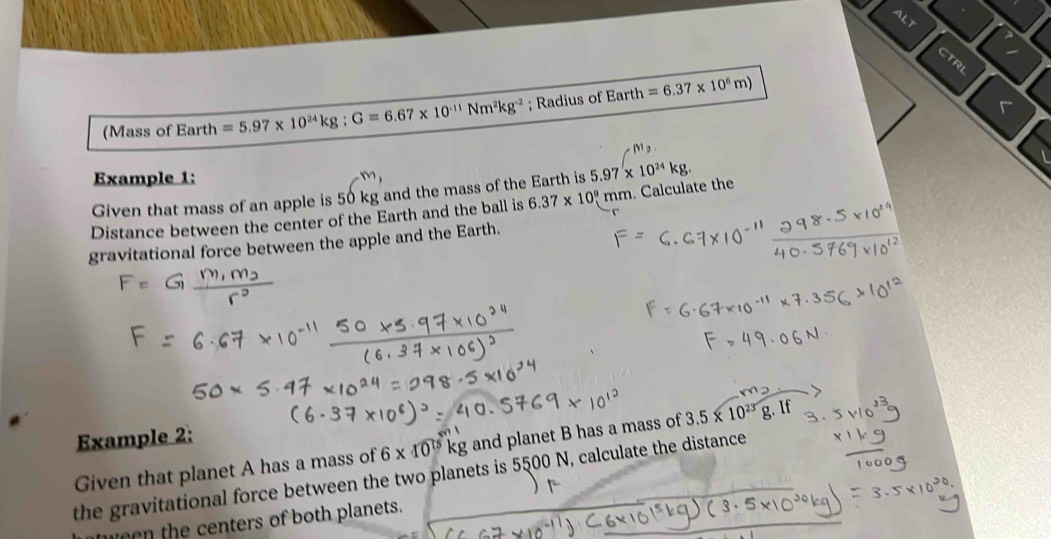 ALT
CTRL
(Mass of Earth = 5.97 x 10²⁴ kg ; G = 6.67 x 10⁻¹¹ Nm²kg⁻² ; Radius of Earth = 6.37 x 10⁶ m)
Example 1:
m₁
m₂.
Given that mass of an apple is 50 kg and the mass of the Earth is 5.97 x 10²⁴ kg.
Distance between the center of the Earth and the ball is 6.37 x 10⁹ mm. Calculate the
r
gravitational force between the apple and the Earth.
F = G m₁m₂ / r²
F = 6.67 × 10⁻¹¹ 50 × 5.97 × 10²⁴ / (6.37 × 106)²
50 × 5.97 × 10²⁴ = 298.5 × 10²⁴
(6.37 × 10⁶)² = 40.5769 × 10¹²
F = 6.67 × 10⁻¹¹ 298.5 × 10²⁴ / 40.5769 × 10¹²
F = 6.67 × 10⁻¹¹ × 7.356 × 10¹²
F = 49.06 N.
Example 2:
m₁
m₂
Given that planet A has a mass of 6 x 10¹⁵ kg and planet B has a mass of 3.5 x 10²³ g. If
the gravitational force between the two planets is 5500 N, calculate the distance
F
between the centers of both planets.
3.5 × 10²³ g
× 1 kg / 1000 g
= 3.5 × 10²⁰ kg
(6.67 × 10⁻¹¹) (6 × 10¹⁵ kg) (3.5 × 10²⁰ kg)